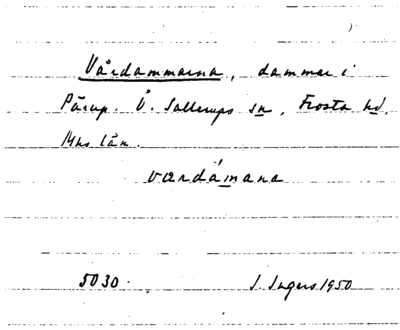 Vårdammarna, dammar i
Pårup. Ö. Sallerups sn, Frosta hd.
Mhs län.
vœrdámana
5030.
I. Ingers 1950